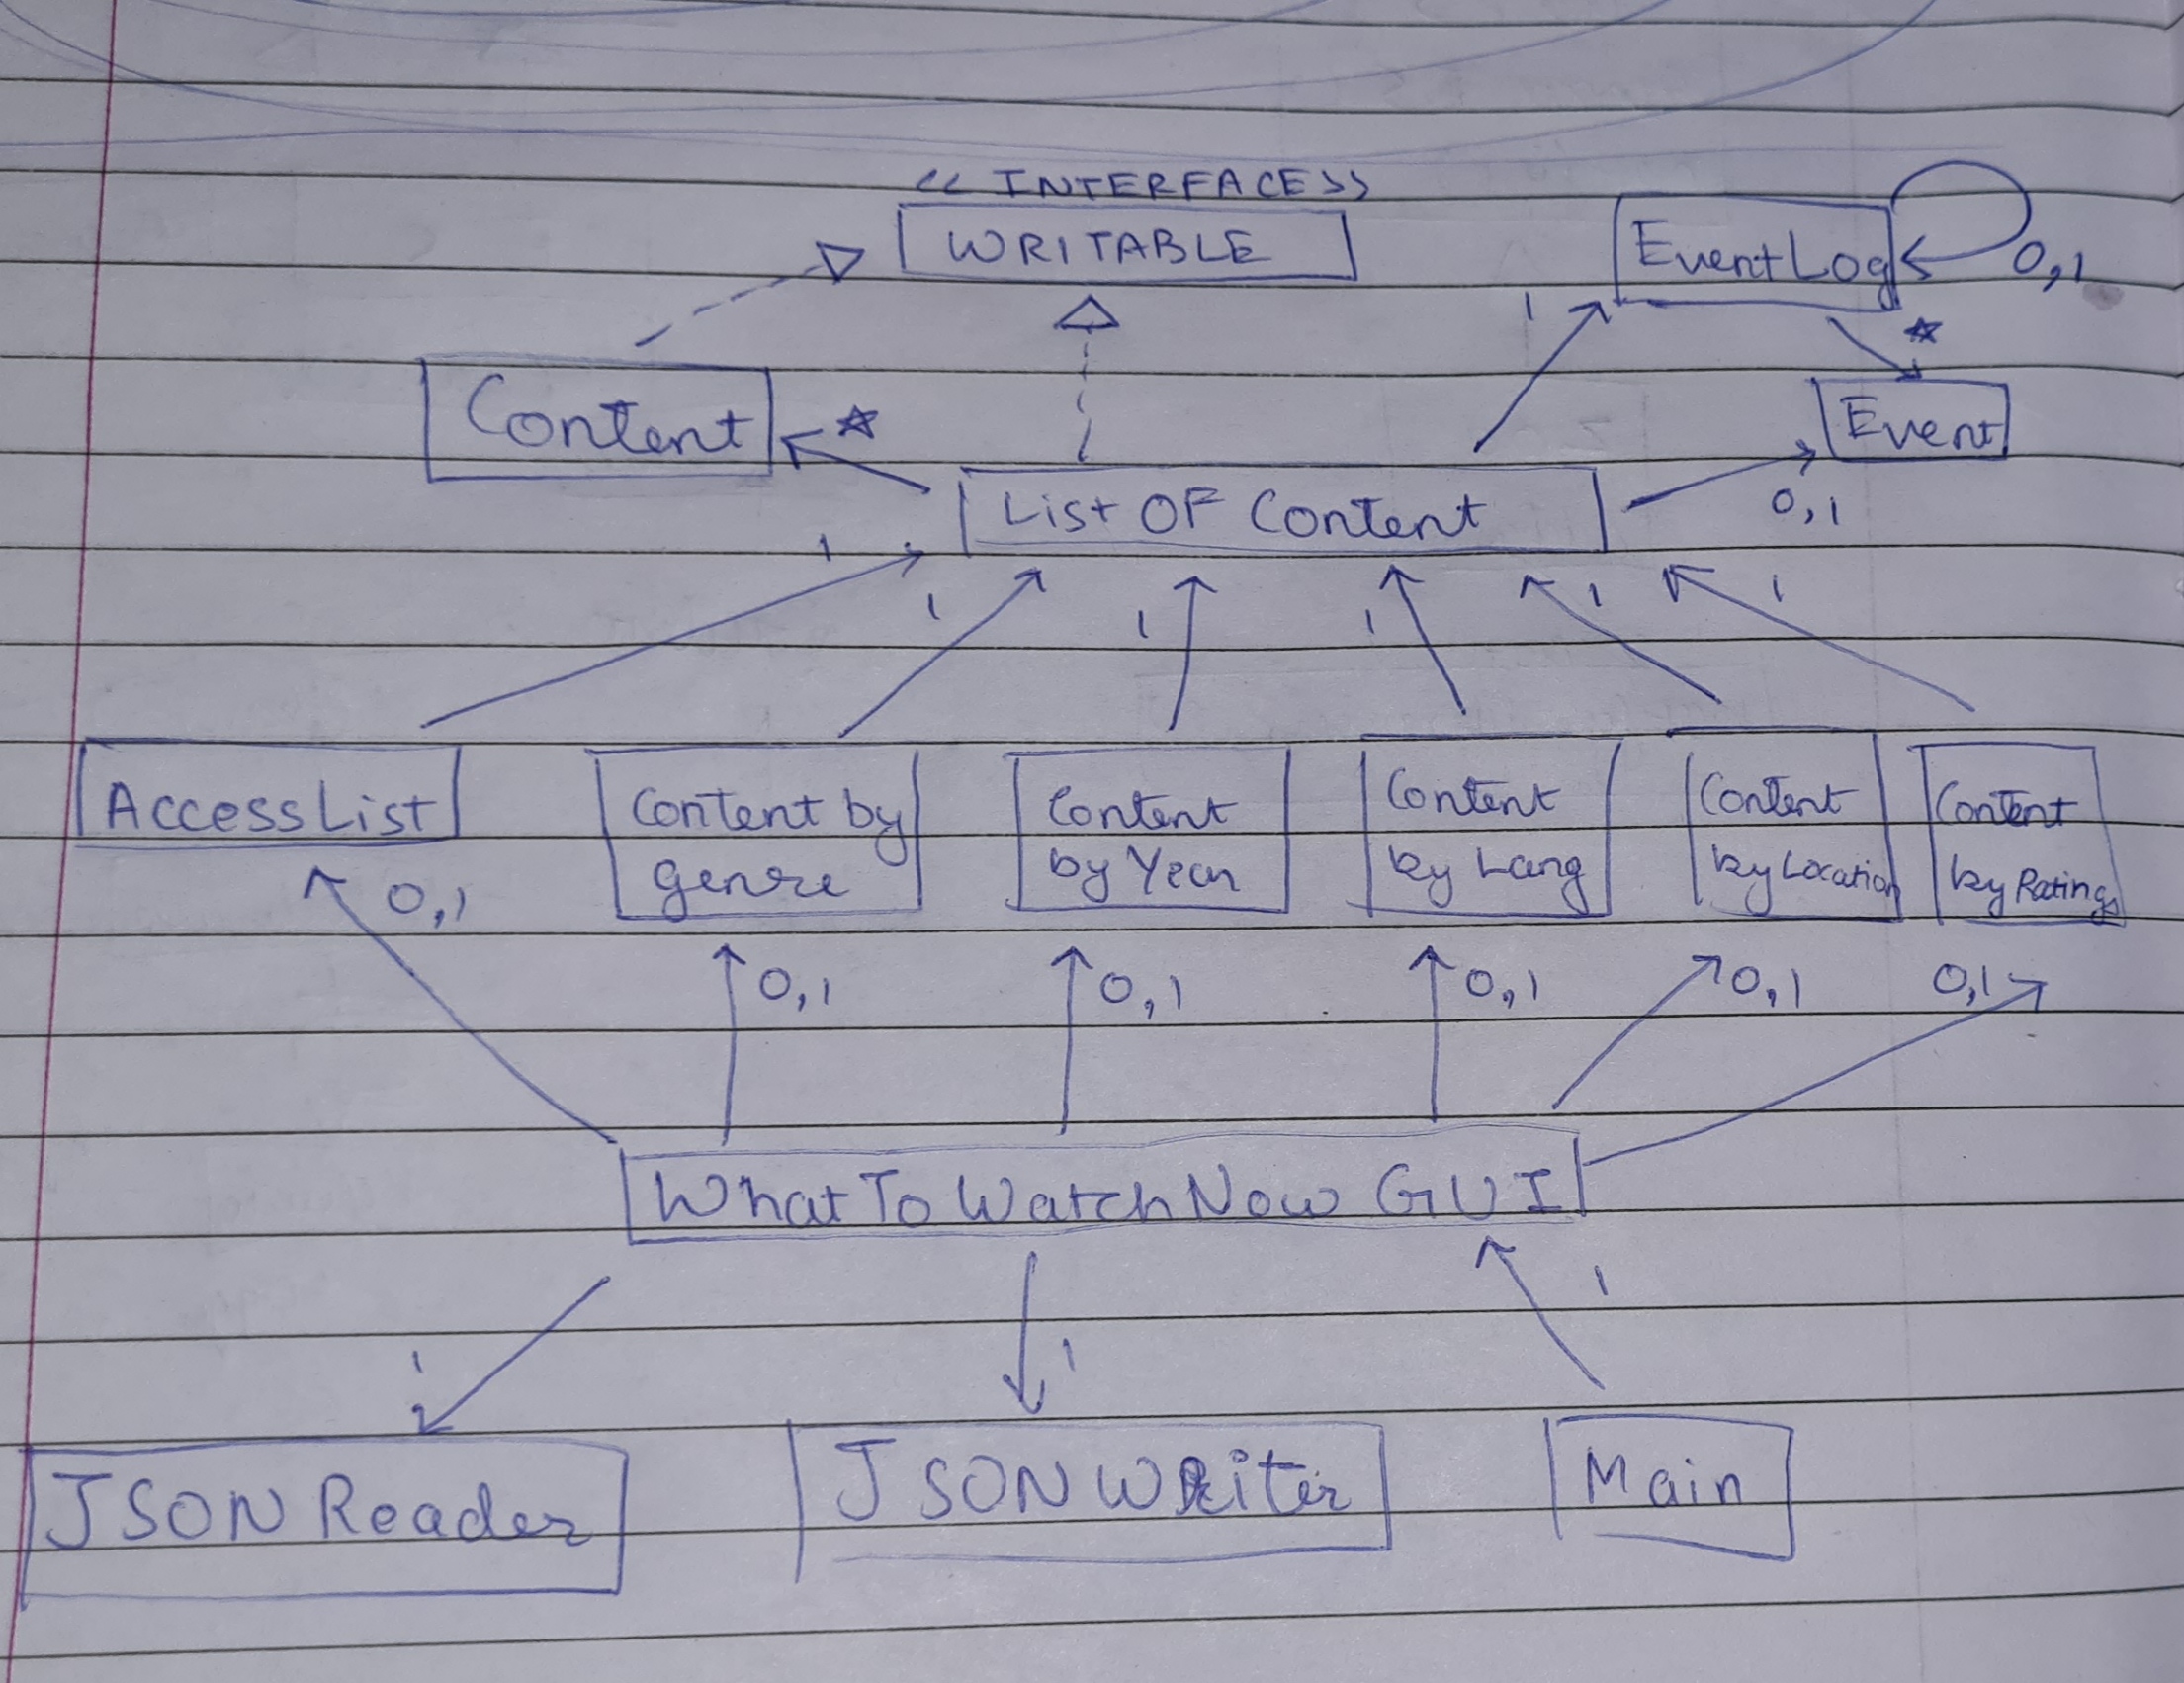 << INTERFACE>>
WRITABLE
EventLog
0,1
1
*
Content
*
Event
List OF Content
0,1
1
1
1
1
1
1
AccessList
Content by
genre
Content
by Year
Content
by Lang
Content
by Location
Content
by Ratings
0,1
0,1
0,1
0,1
0,1
0,1
WhatToWatchNow GUI
1
1
1
JSON Reader
JSON WRiter
Main